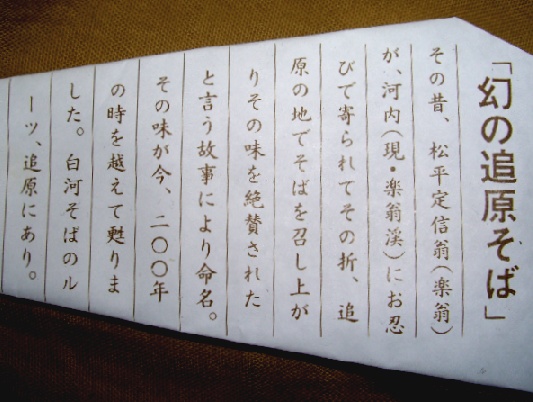 「幻の追原そば」
その昔、松平定信翁(楽翁)
が、河内(現・楽翁渓)にお忍
びで寄られてその折、追
原の地でそばを召し上が
りその味を絶賛された
と言う故事により命名。
その味が今、二〇〇年
の時を越えて甦りま
した。白河そばのル
ーツ、追原にあり。